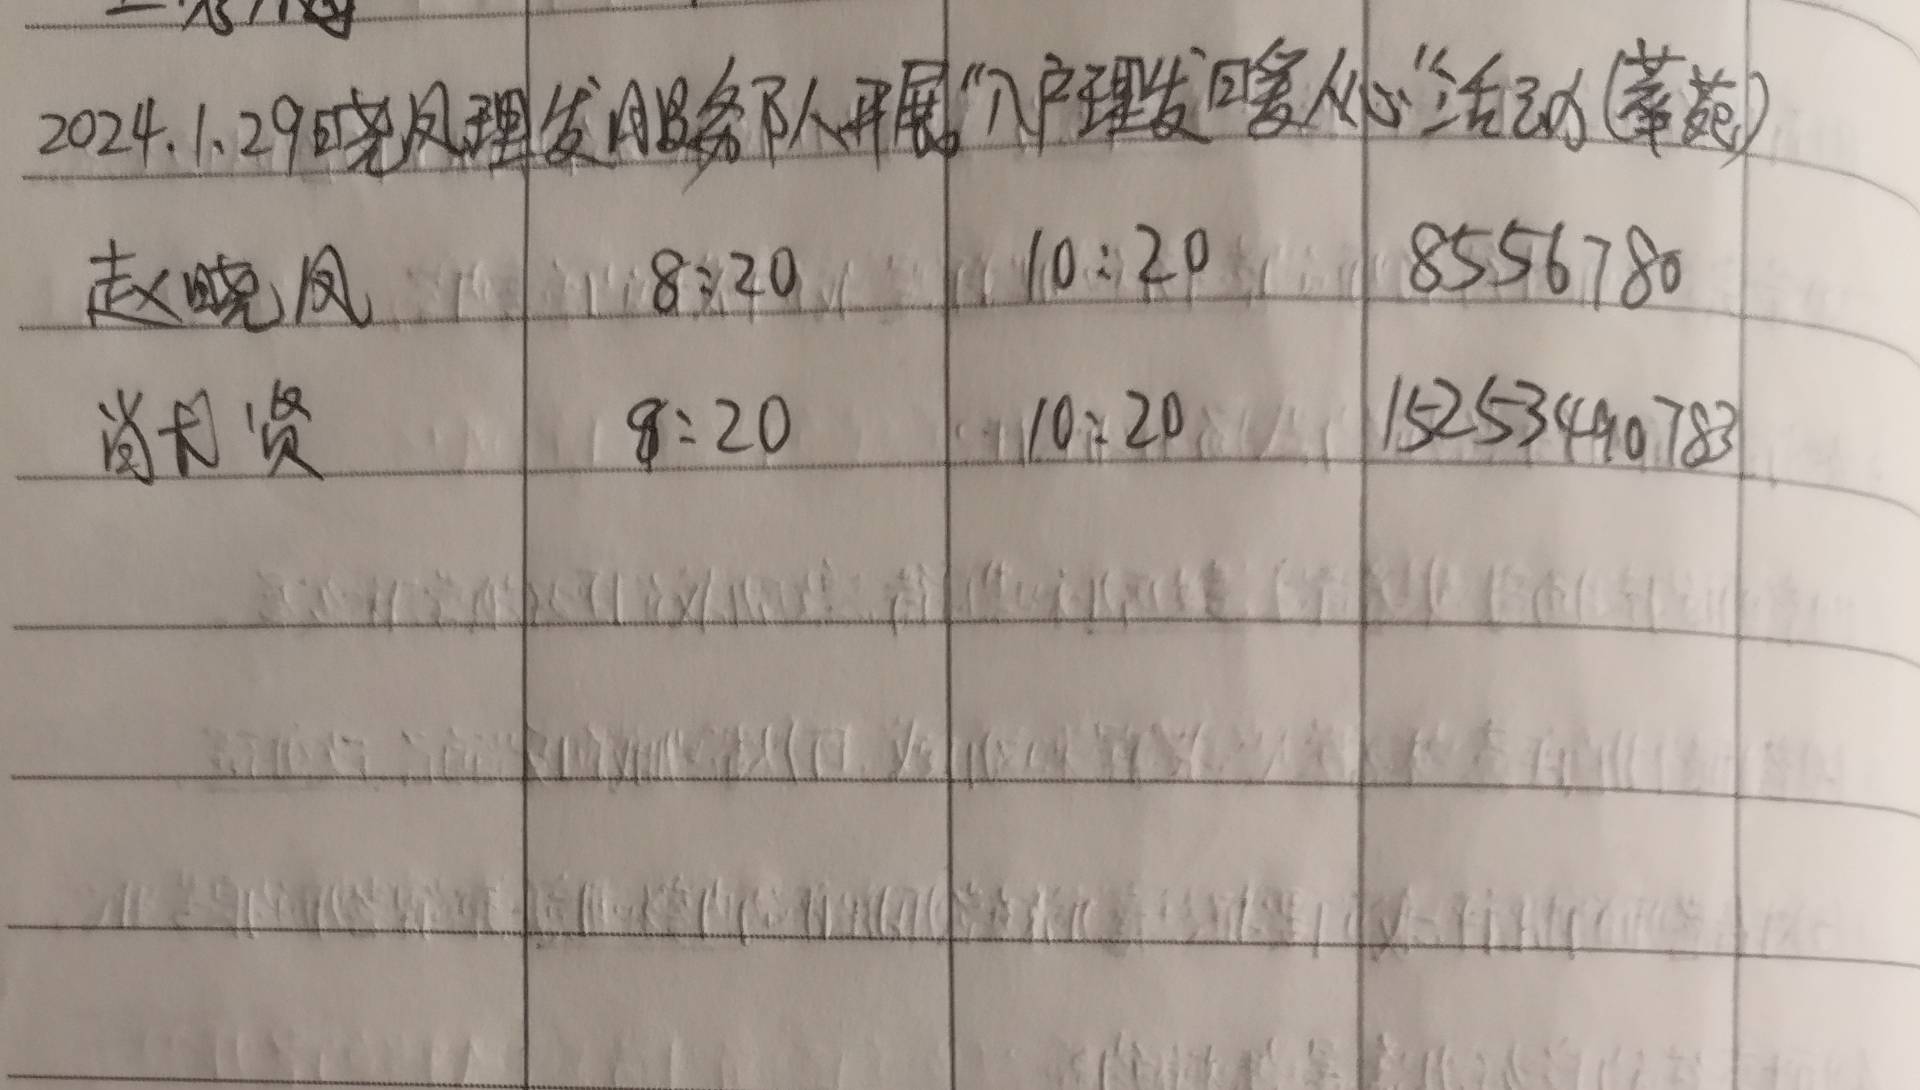 2024.1.29晓凤理发服务队开展“入户理发暖人心”活动(莘苑)
赵晓凤 8:20 10:20 8556780
肖月贤 8:20 10:20 15253490783